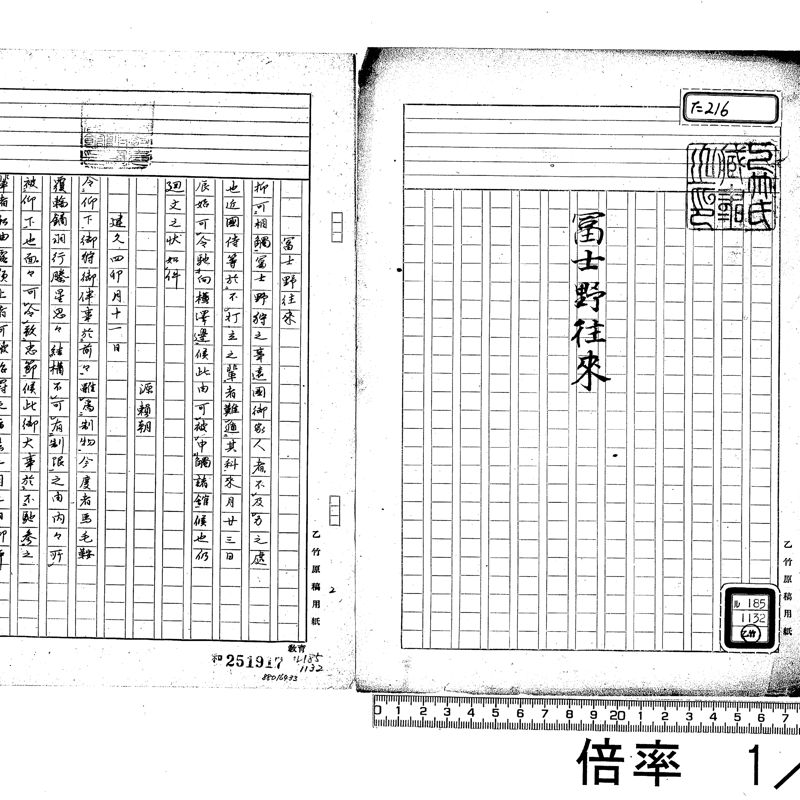 た216
冨士野往來
乙竹原稿用紙
ル 185
1132
乙竹
0 1 2 3 4 5 6 7 8 9 20 1 2 3 4 5 6 7
倍率 1/
冨士野往來
抑可相觸冨士野狩之事遠國御家人者不及力之處
也近國侍等於不打立之輩者難遁其科來月廿三日
辰始可令馳向横澤邊候此由可被申觸諸館候也仍
廻文之狀如件
建久四卯月十一日
源頼朝
令仰下御狩御伴事於前々雖爲制物今度者馬毛鞍
覆輪鏑羽行騰星思々結構不可有制限之由内々所
被仰下也面々可令致忠節候此御大事於不馳參之
乙竹原稿用紙
2
教育
和251917
ル185
1132
88016933